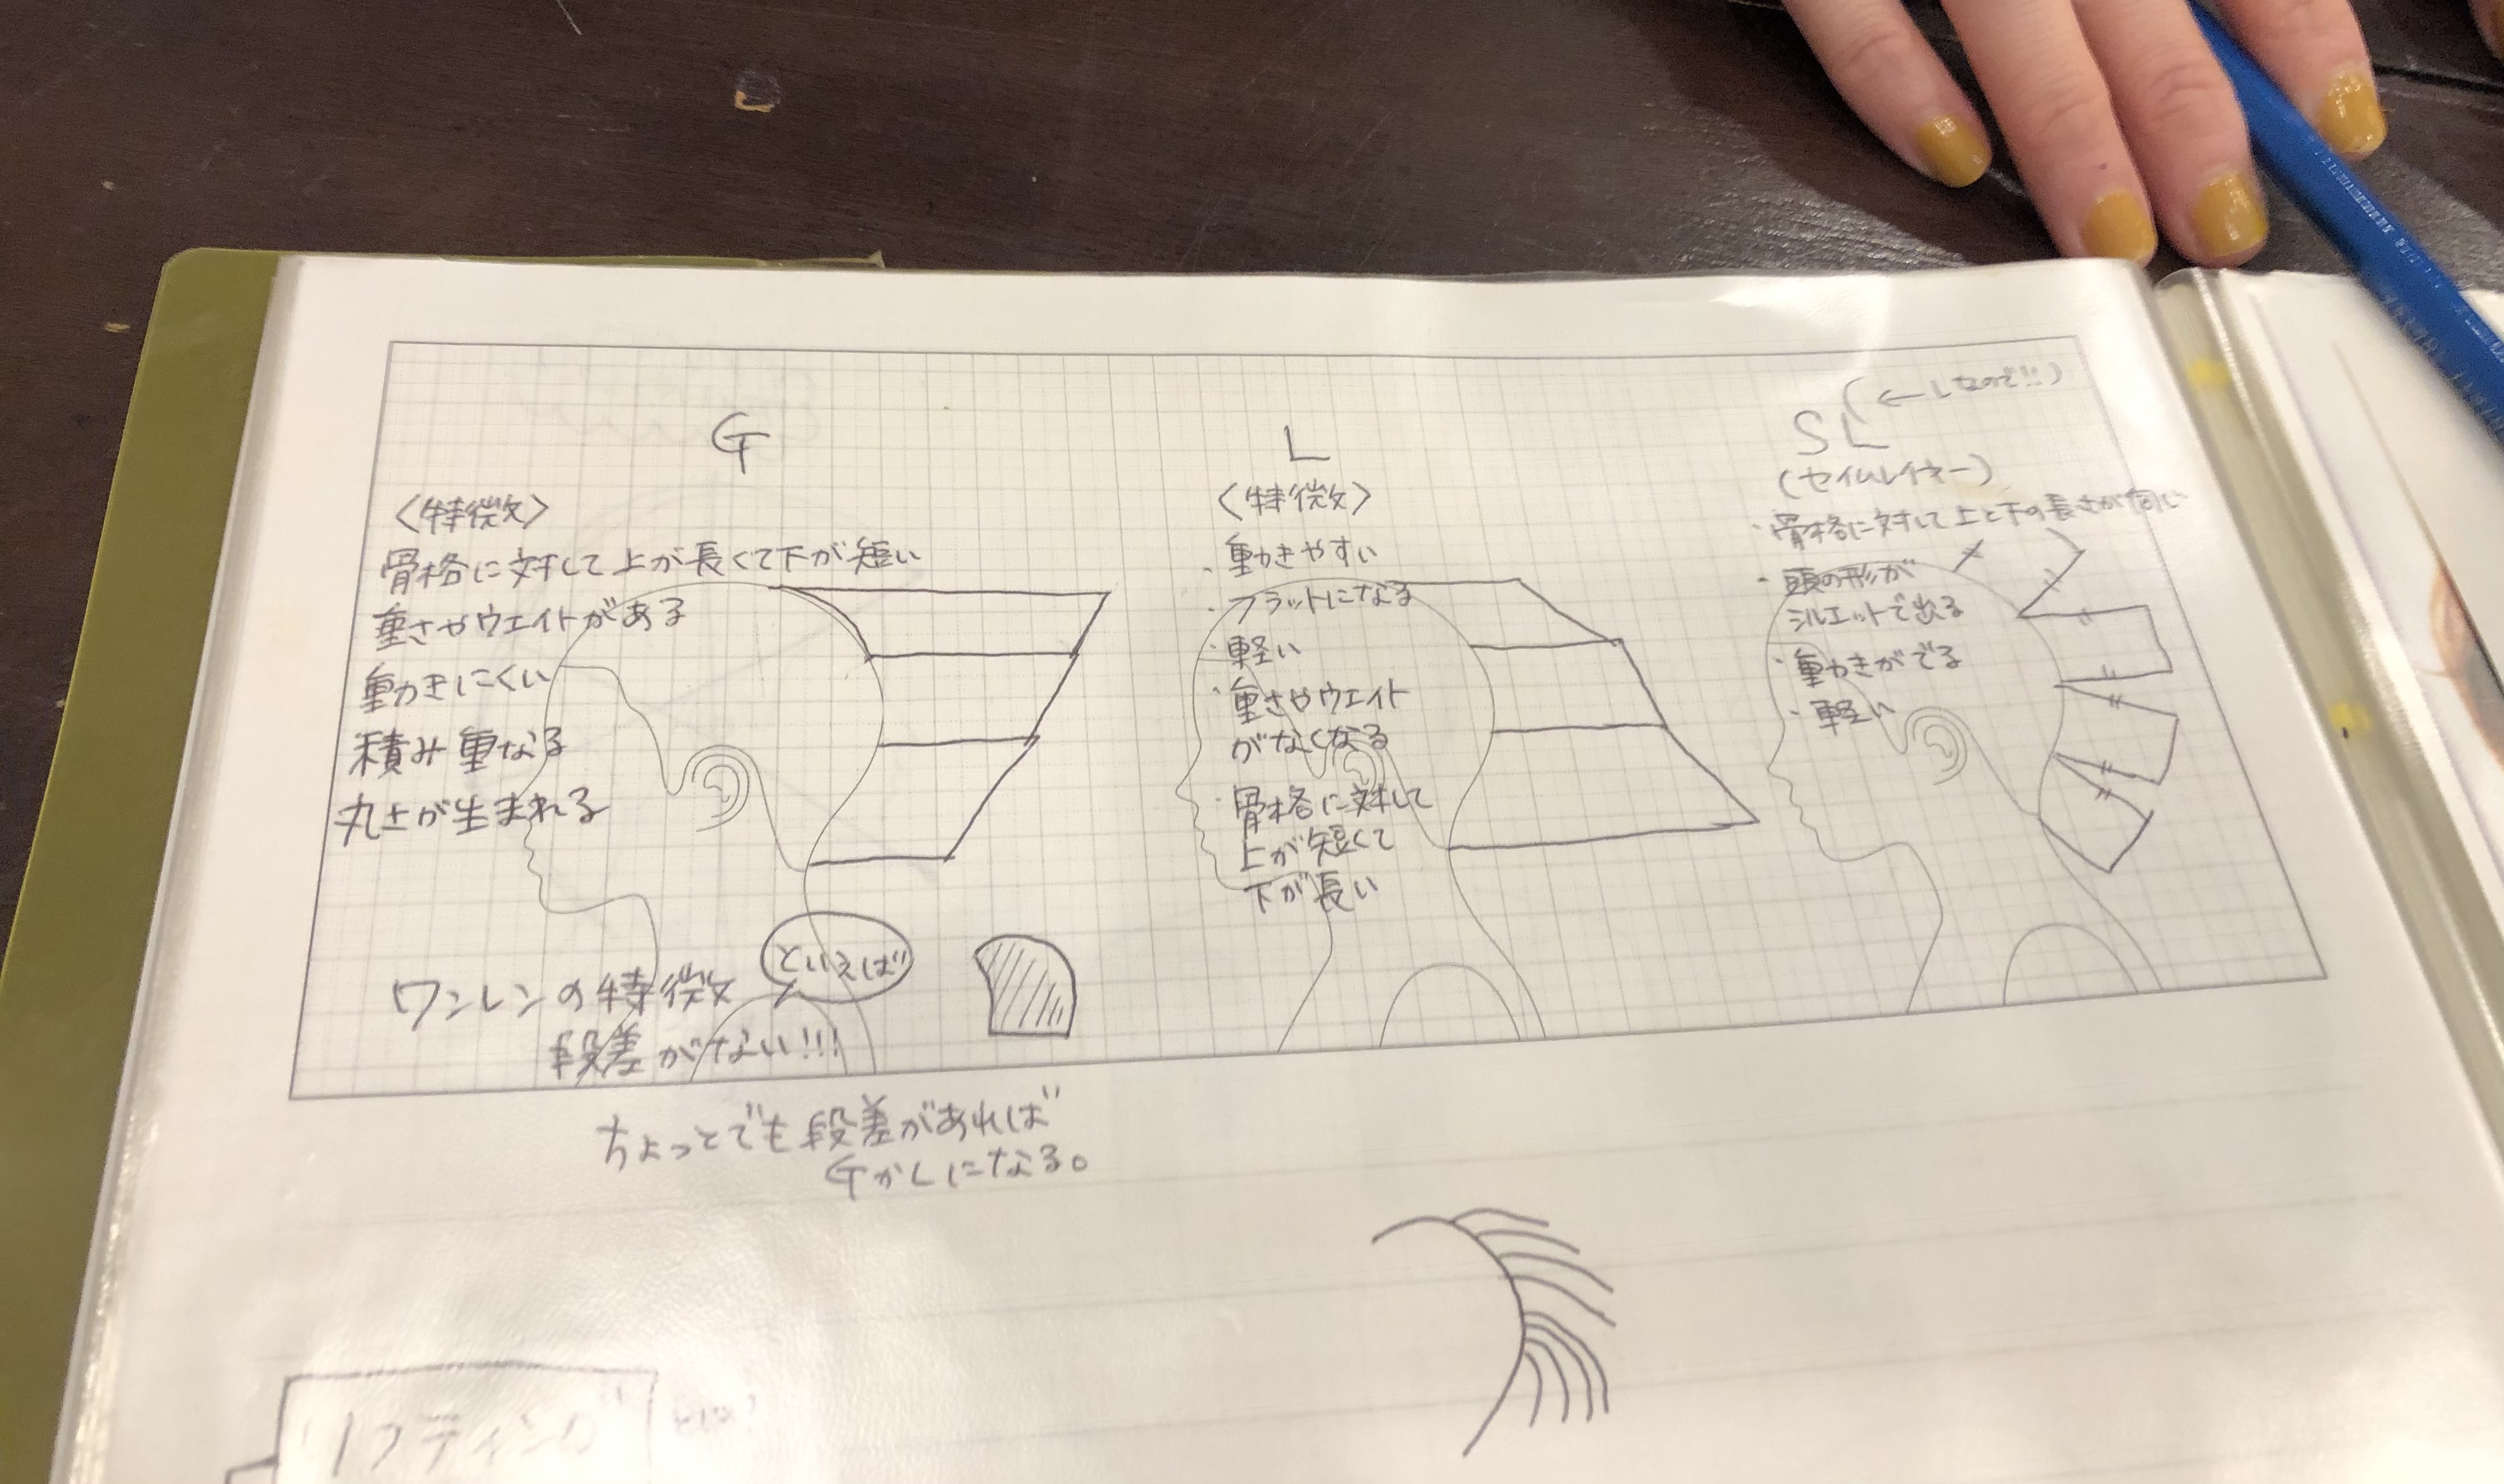 G
〈特徴〉
骨格に対して上が長くて下が短い
重さやウエイトがある
動きにくい
積み重なる
丸さが生まれる
ワンレンの特徴
といえば
段差がない!!!
ちょっとでも段差があれば
GかLになる。
L
〈特徴〉
・動きやすい
・フラットになる
・軽い
・重さやウエイト
がなくなる
・骨格に対して
上が短くて
下が長い
(←Lなので!!)
SL
(セイムレイヤー)
・骨格に対して上と下の長さが同じ
・頭の形が
シルエットで出る
・動きがでる
・軽い
リフティング
とは?